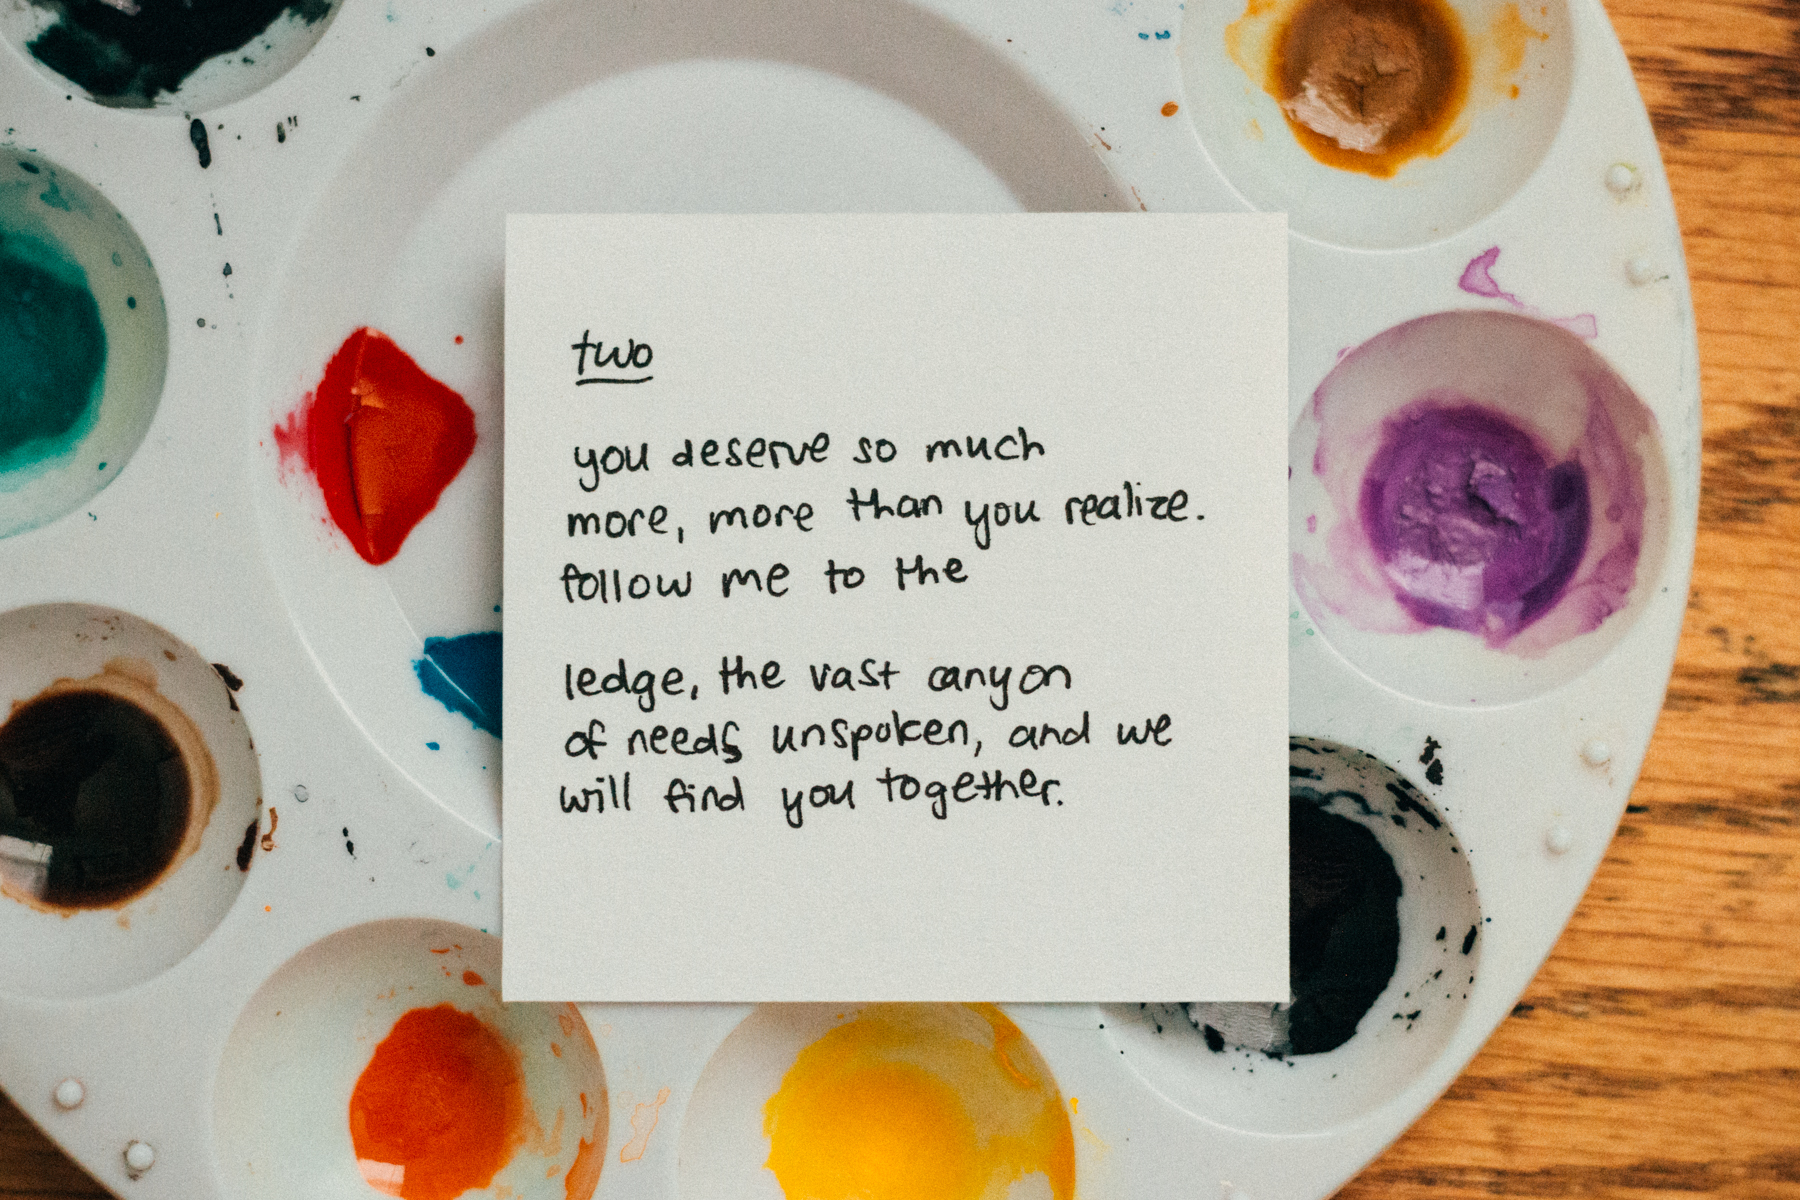 two
you deserve so much
more, more than you realize.
follow me to the
ledge, the vast canyon
of needs unspoken, and we
will find you together.